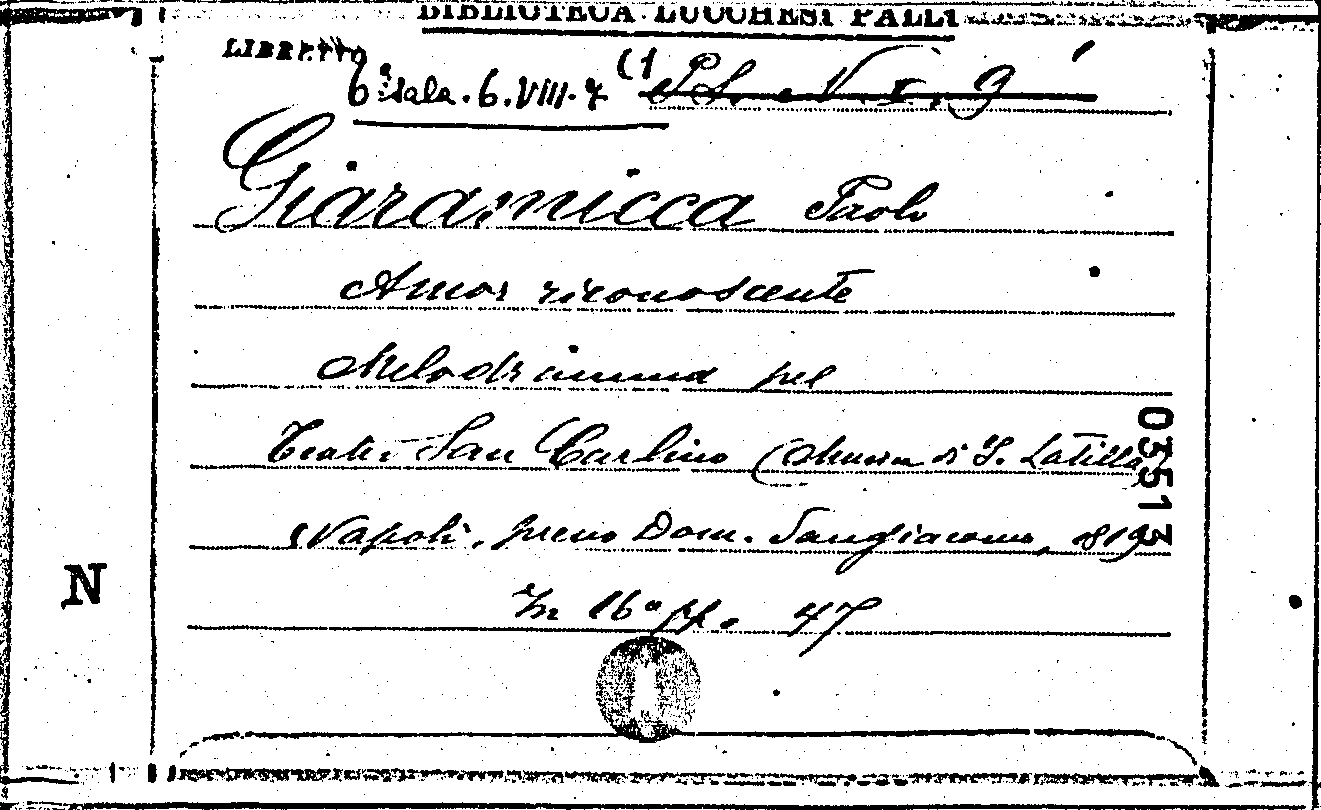 BIBLIOTECA LUCCHESI PALLI
LIBRETTO
6ª Sala. 6. VIII. 7 (1
Giaramicca Paolo
Amor riconoscente
Melodramma pel
Teatro San Carlino (Musica di G. Latilla)
Napoli, presso Dom. Sangiacomo, 1819
In 16° pp. 47
03513
N